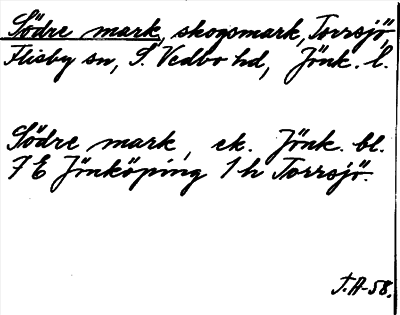 Södre mark, skogsmark, Torrsjö,
Flisby sn, S. Vedbo hd, Jönk. l.
Södre mark, ek. Jönk. bl.
7 E Jönköping 1 h Torrsjö.
T.A-58.